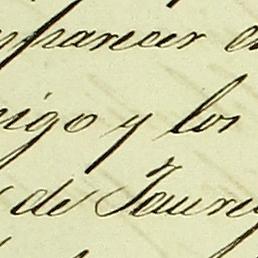 parecer
migo y los
de Taureg